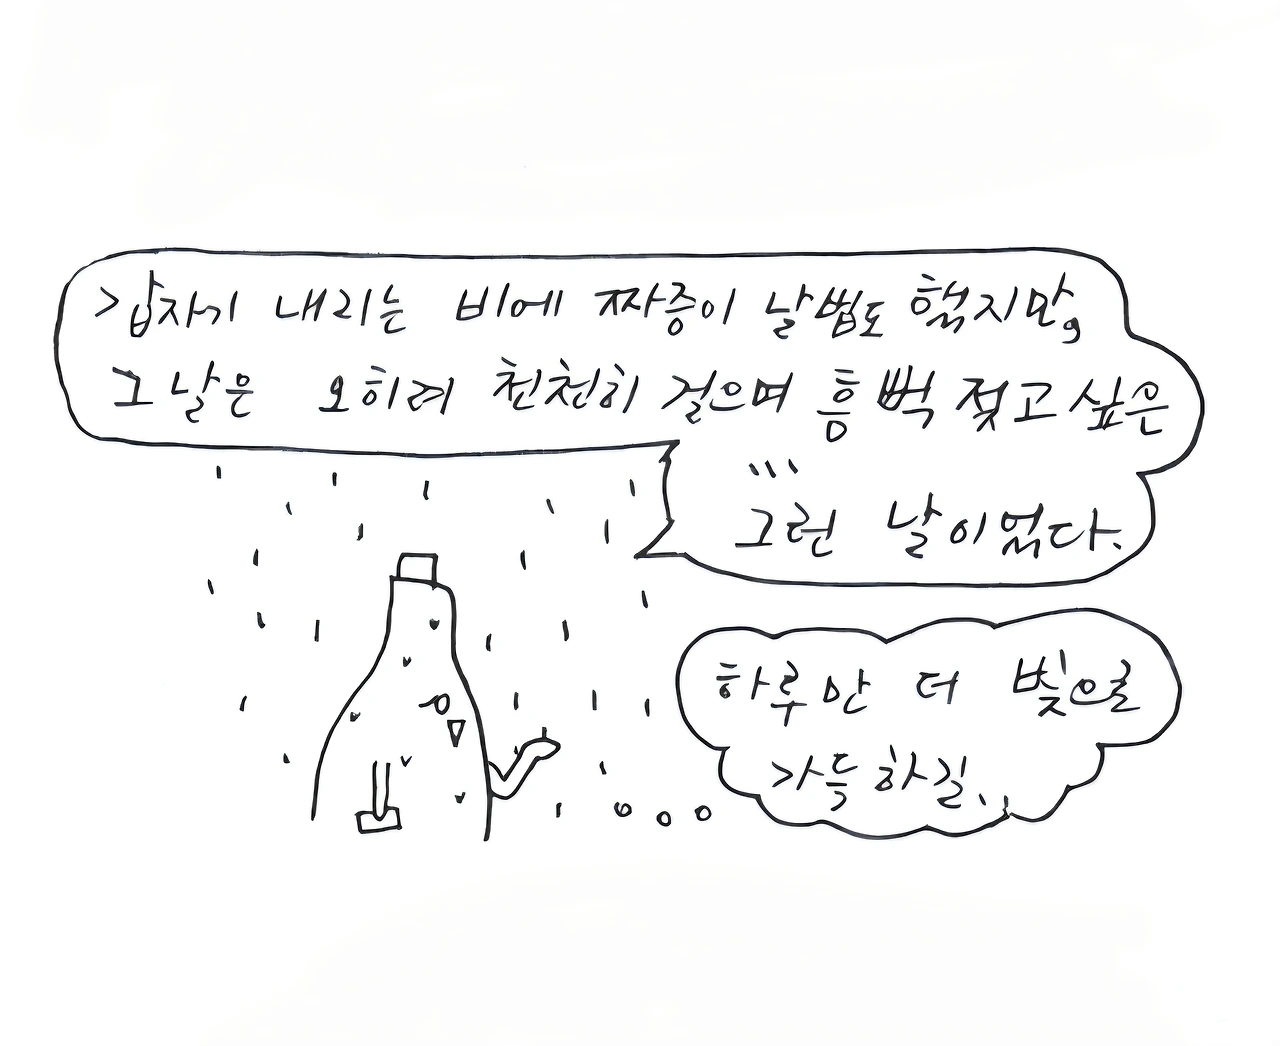 갑자기 내리는 비에 짜증이 날법도 했지만,
그날은 오히려 천천히 걸으며 흠뻑 젖고 싶은
...
그런 날이었다.
하루만 더 빛으로
가득하길..